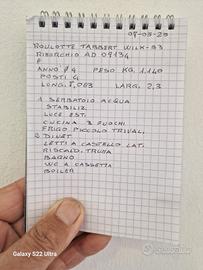 07-05-20
ROULOTTE TABBERT WILK-93
RIBERCHIO AD 09134
E
ANNO 84 PESO KG. 1140
POSTI 4
LONG. 7,083 LARG. 2,3
1 SERBATOIO ACQUA
STABILIZ.
LUCE EST.
CUCINA 3 FUOCHI
FRIGO PICCOLO TRIVAL.
2 DIVET
LETTI A CASTELLO LAT.
RISCALD. TRUMA
BAGNO
WC A CASSETTA
BOILER
Galaxy S22 Ultra
subito